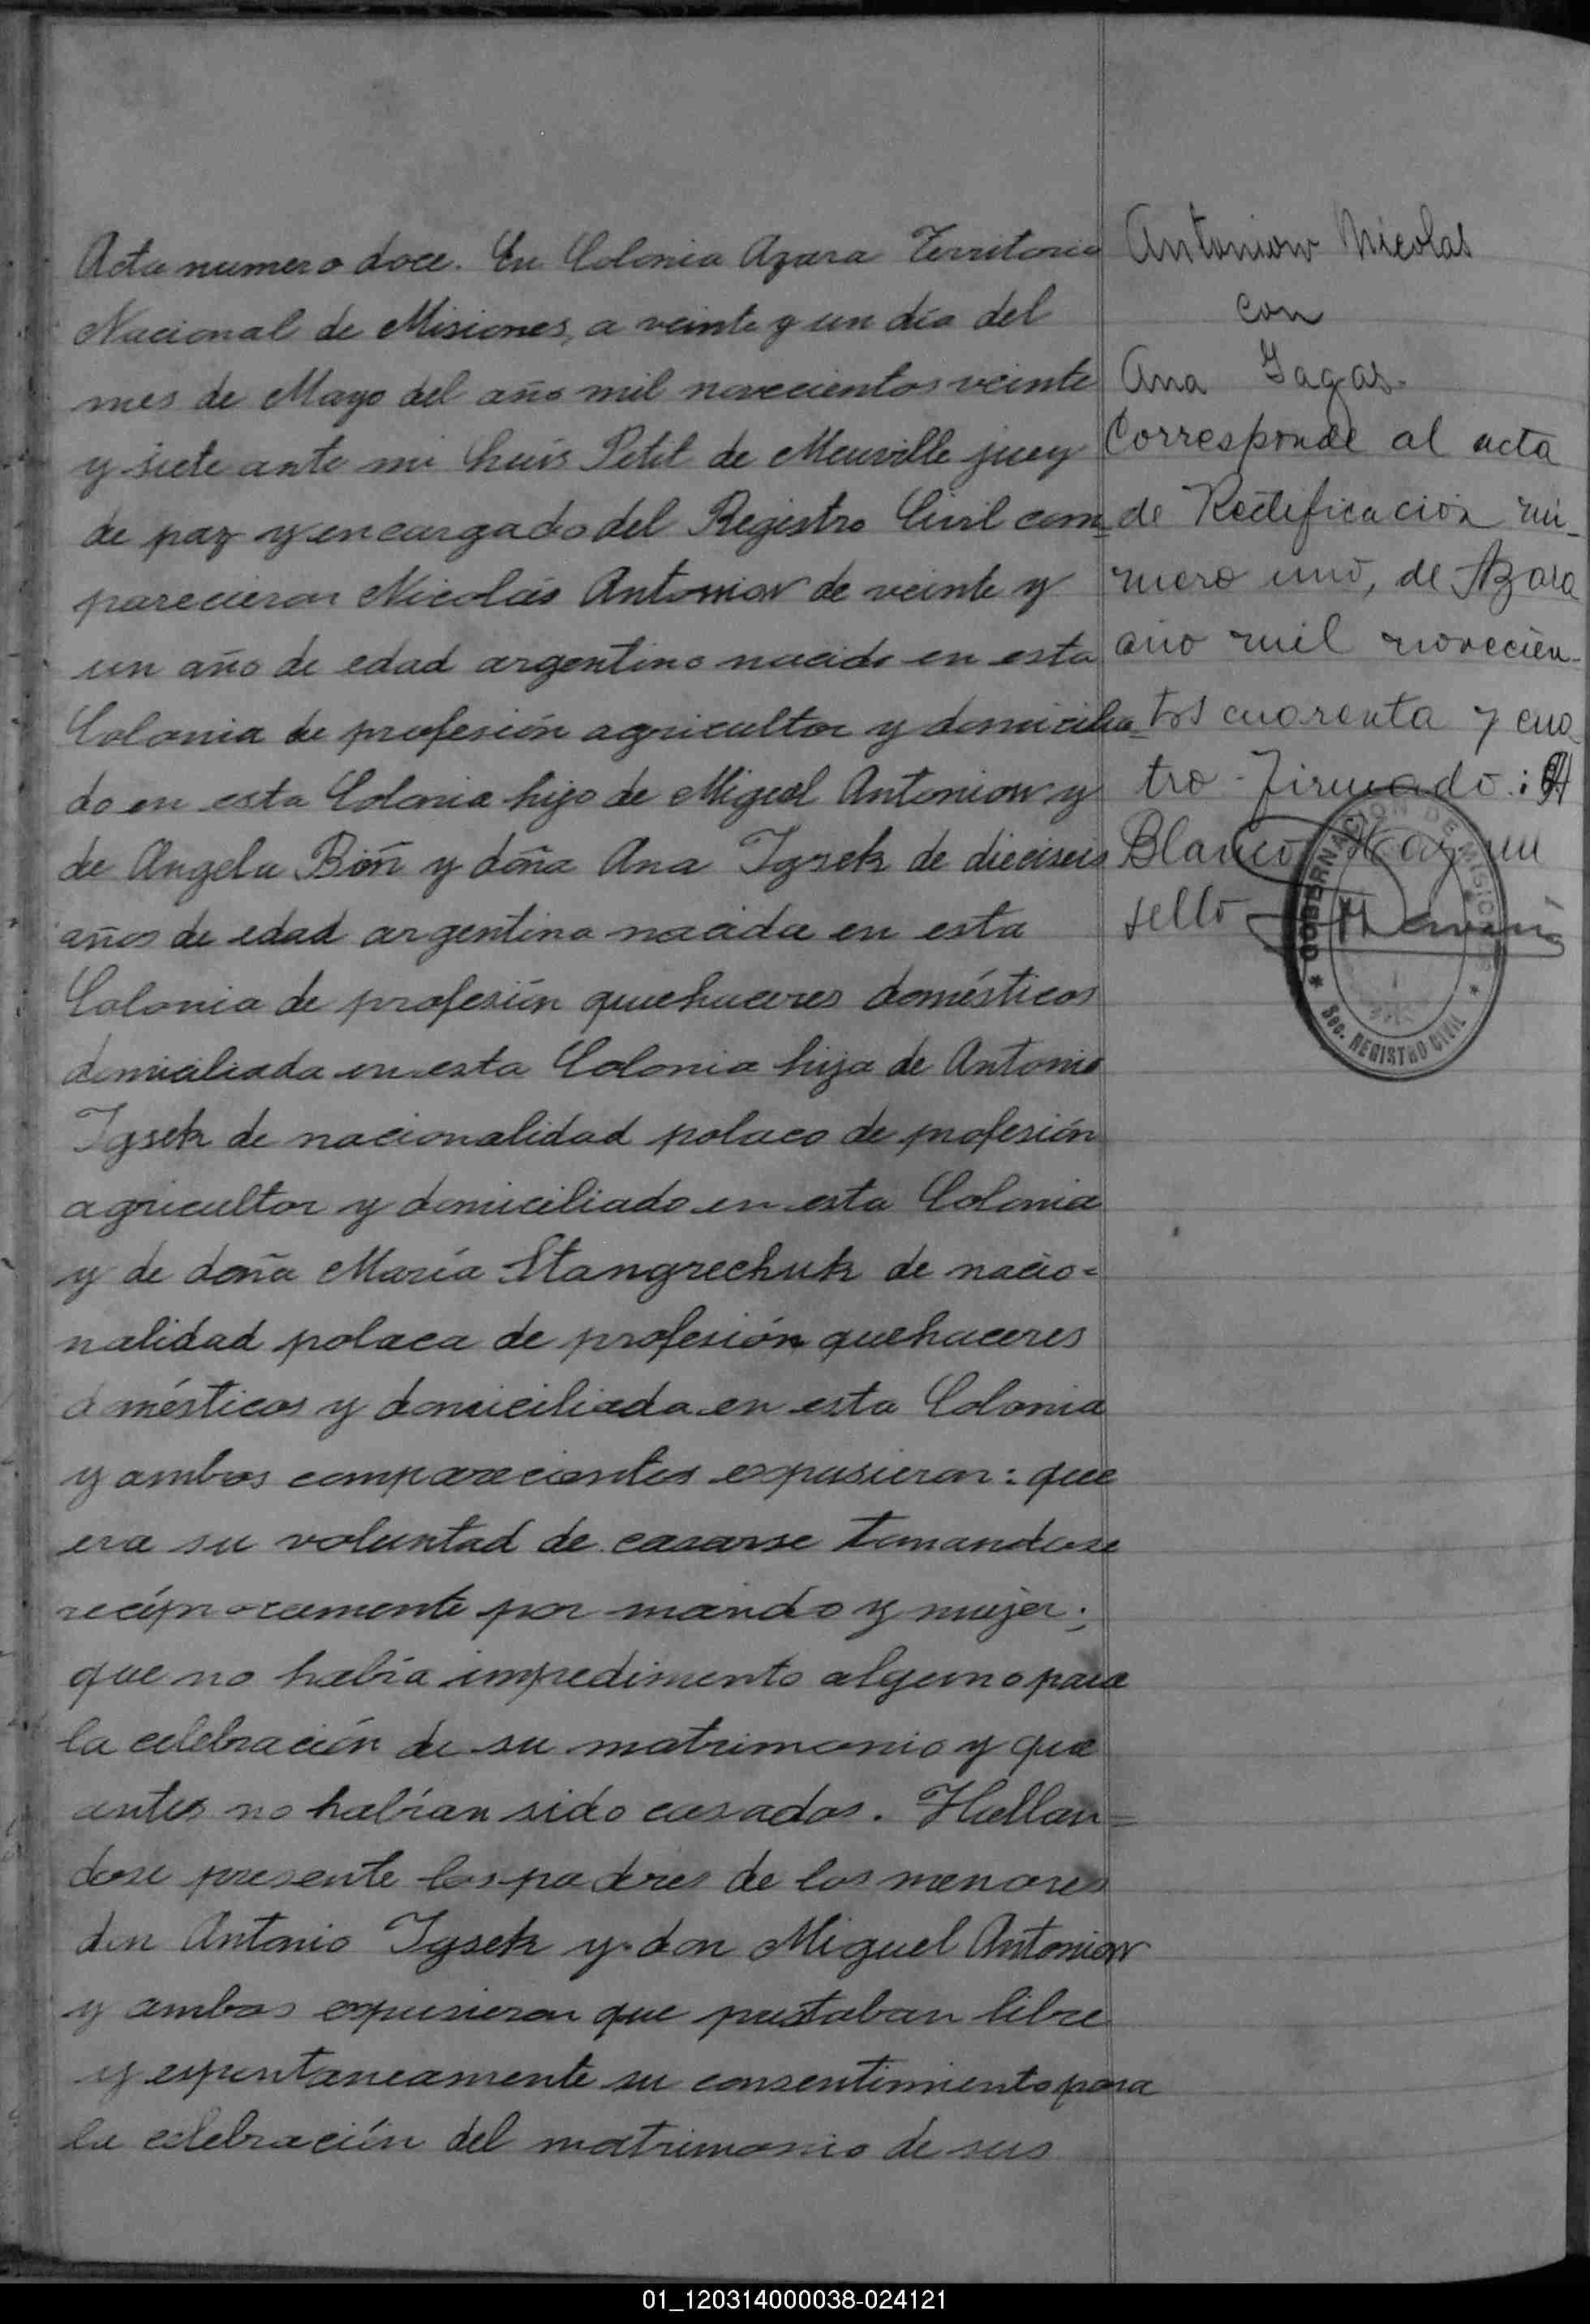 Acta numero doce. En Colonia Azara Territorio
Nacional de Misiones, a veinte y un día del
mes de Mayo del año mil novecientos veinte
y siete ante mi Luis Petit de Meuville juez
de paz y encargado del Registro Civil com=
parecieron Nicolás Antoniow de veinte y
un año de edad argentino nacido en esta
Colonia de profesión agricultor y domicilia=
do en esta Colonia hijo de Miguel Antoniow y
de Angela Boñ y doña Ana Igsek de dieciseis
años de edad argentina nacida en esta
Colonia de profesión quehaceres domésticos
domiciliada en esta Colonia hija de Antonio
Igsek de nacionalidad polaco de profesión
agricultor y domiciliado en esta Colonia
y de doña María Stangrechuk de nacio=
nalidad polaca de profesión quehaceres
domésticos y domiciliada en esta Colonia
y ambos comparecientes expusieron: que
era su voluntad de casarse tomandose
recíprocamente por marido y mujer;
que no había impedimento alguno para
la celebración de su matrimonio y que
antes no habían sido casados. Hallan=
dose presente los padres de los menores
don Antonio Igsek y don Miguel Antoniow
y ambos expusieron que prestaban libre
y espontaneamente su consentimiento para
la celebración del matrimonio de sus
Antoniow Nicolas
con
Ana Gagas.
Corresponde al acta
de Rectificación nú-
mero uno, de Azara
año mil novecien-
tos cuarenta y cua
tro - Firmado: A
Blanco Hay un
sello
GOBERNACION DE MISIONES
Sec. REGISTRO CIVIL
01_120314000038-024121